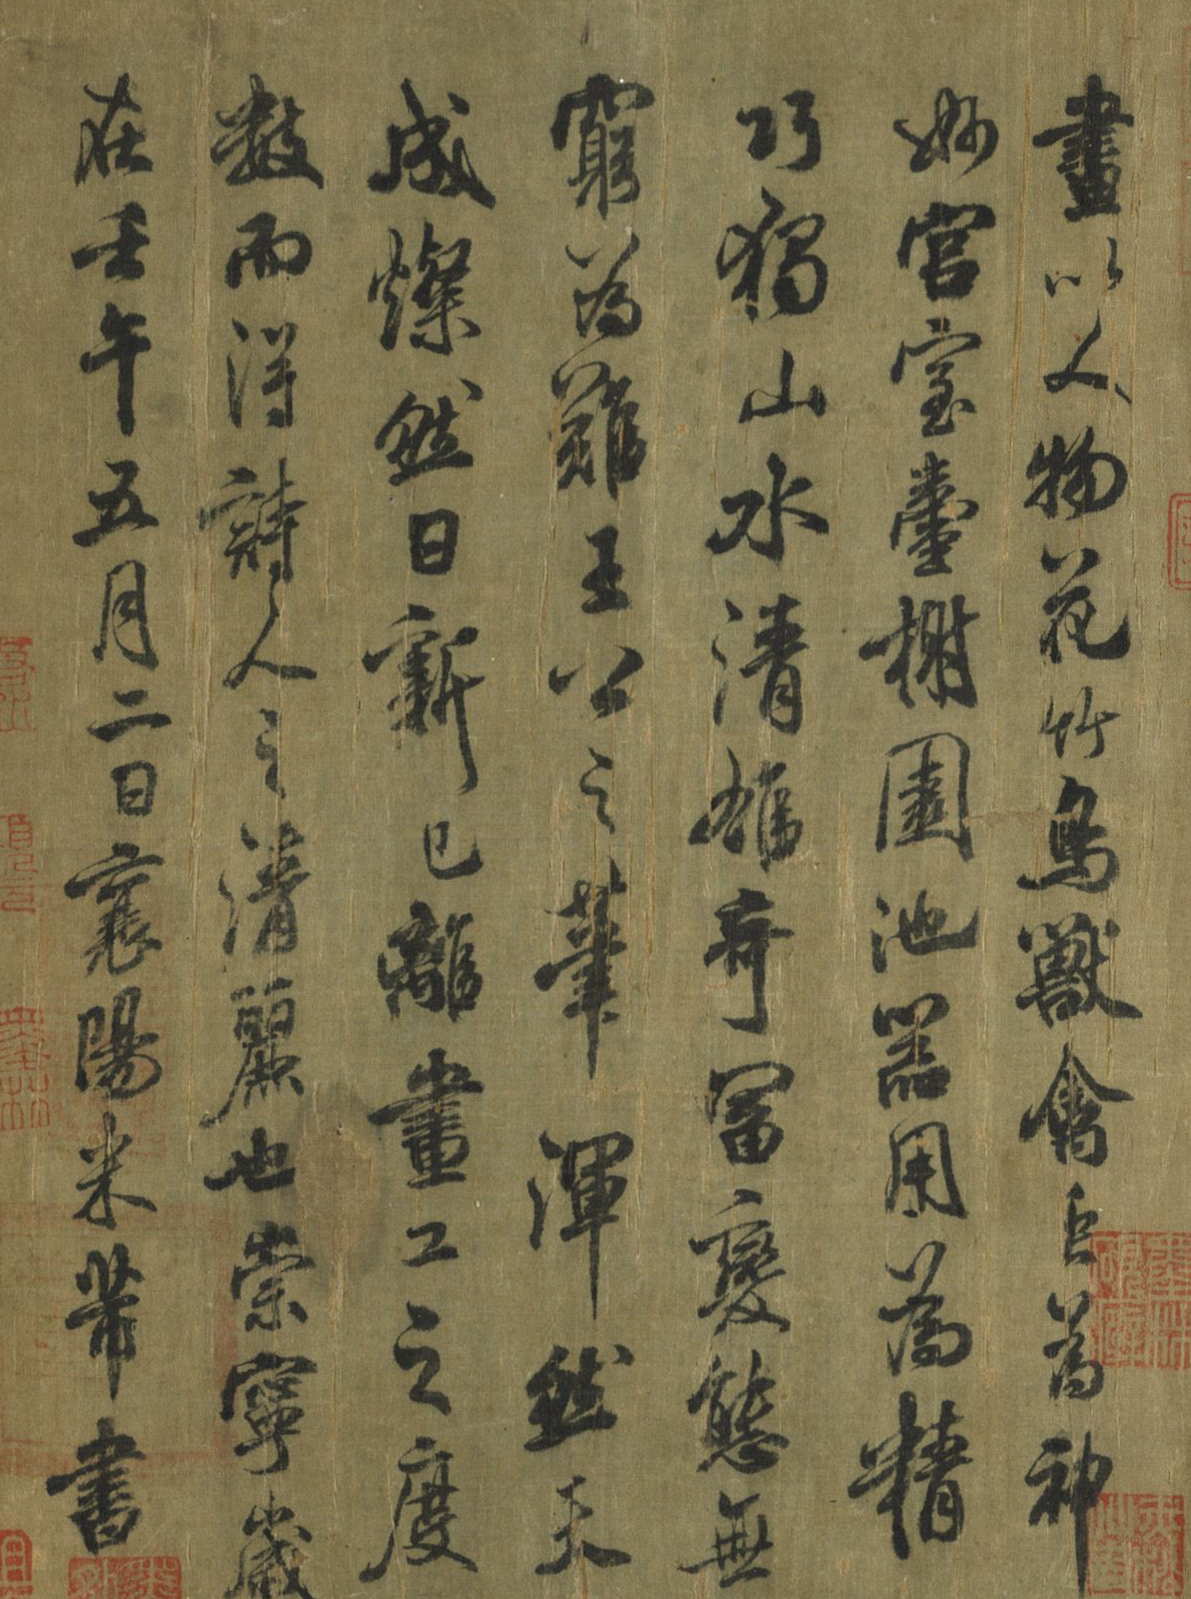 畫以人物花竹鳥獸禽虫為神
妙宮室臺榭園池器用為精
巧獨山水清雄奇富變態無
窮為難王公之筆渾然天
成燦然日新已離畫工之度
數而得詩人之清麗也崇寧歲
在壬午五月二日襄陽米芾書